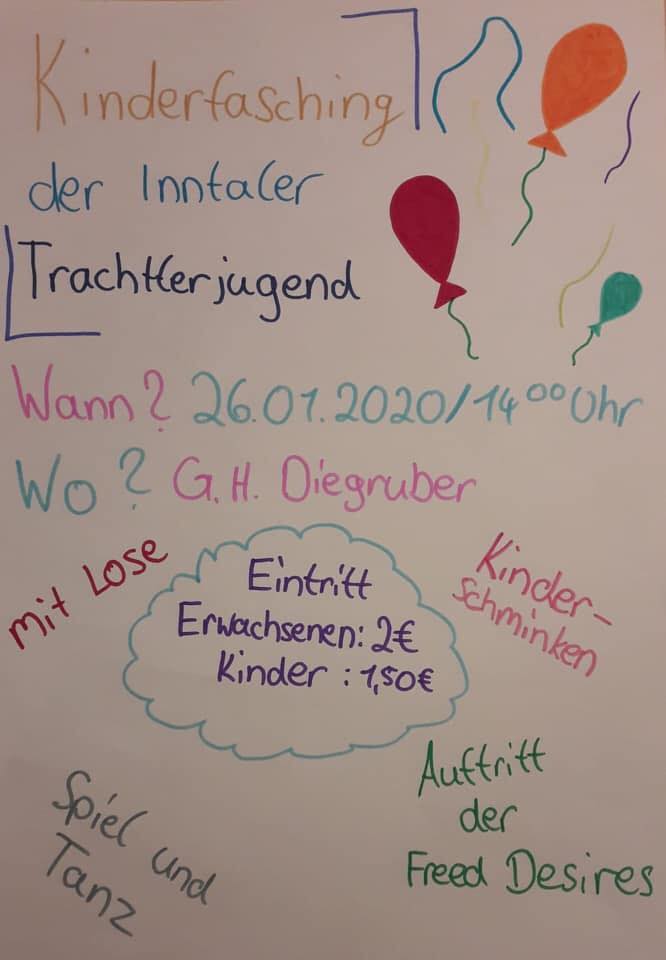 Kinderfasching
der Inntaler
Trachtlerjugend
Wann? 26.01.2020/14⁰⁰ Uhr
Wo? G.H. Diegruber
mit Lose
Eintritt
Erwachsenen: 2€
Kinder : 1,50€
Kinder-
schminken
Auftritt
der
Freed Desires
Spiel und
Tanz